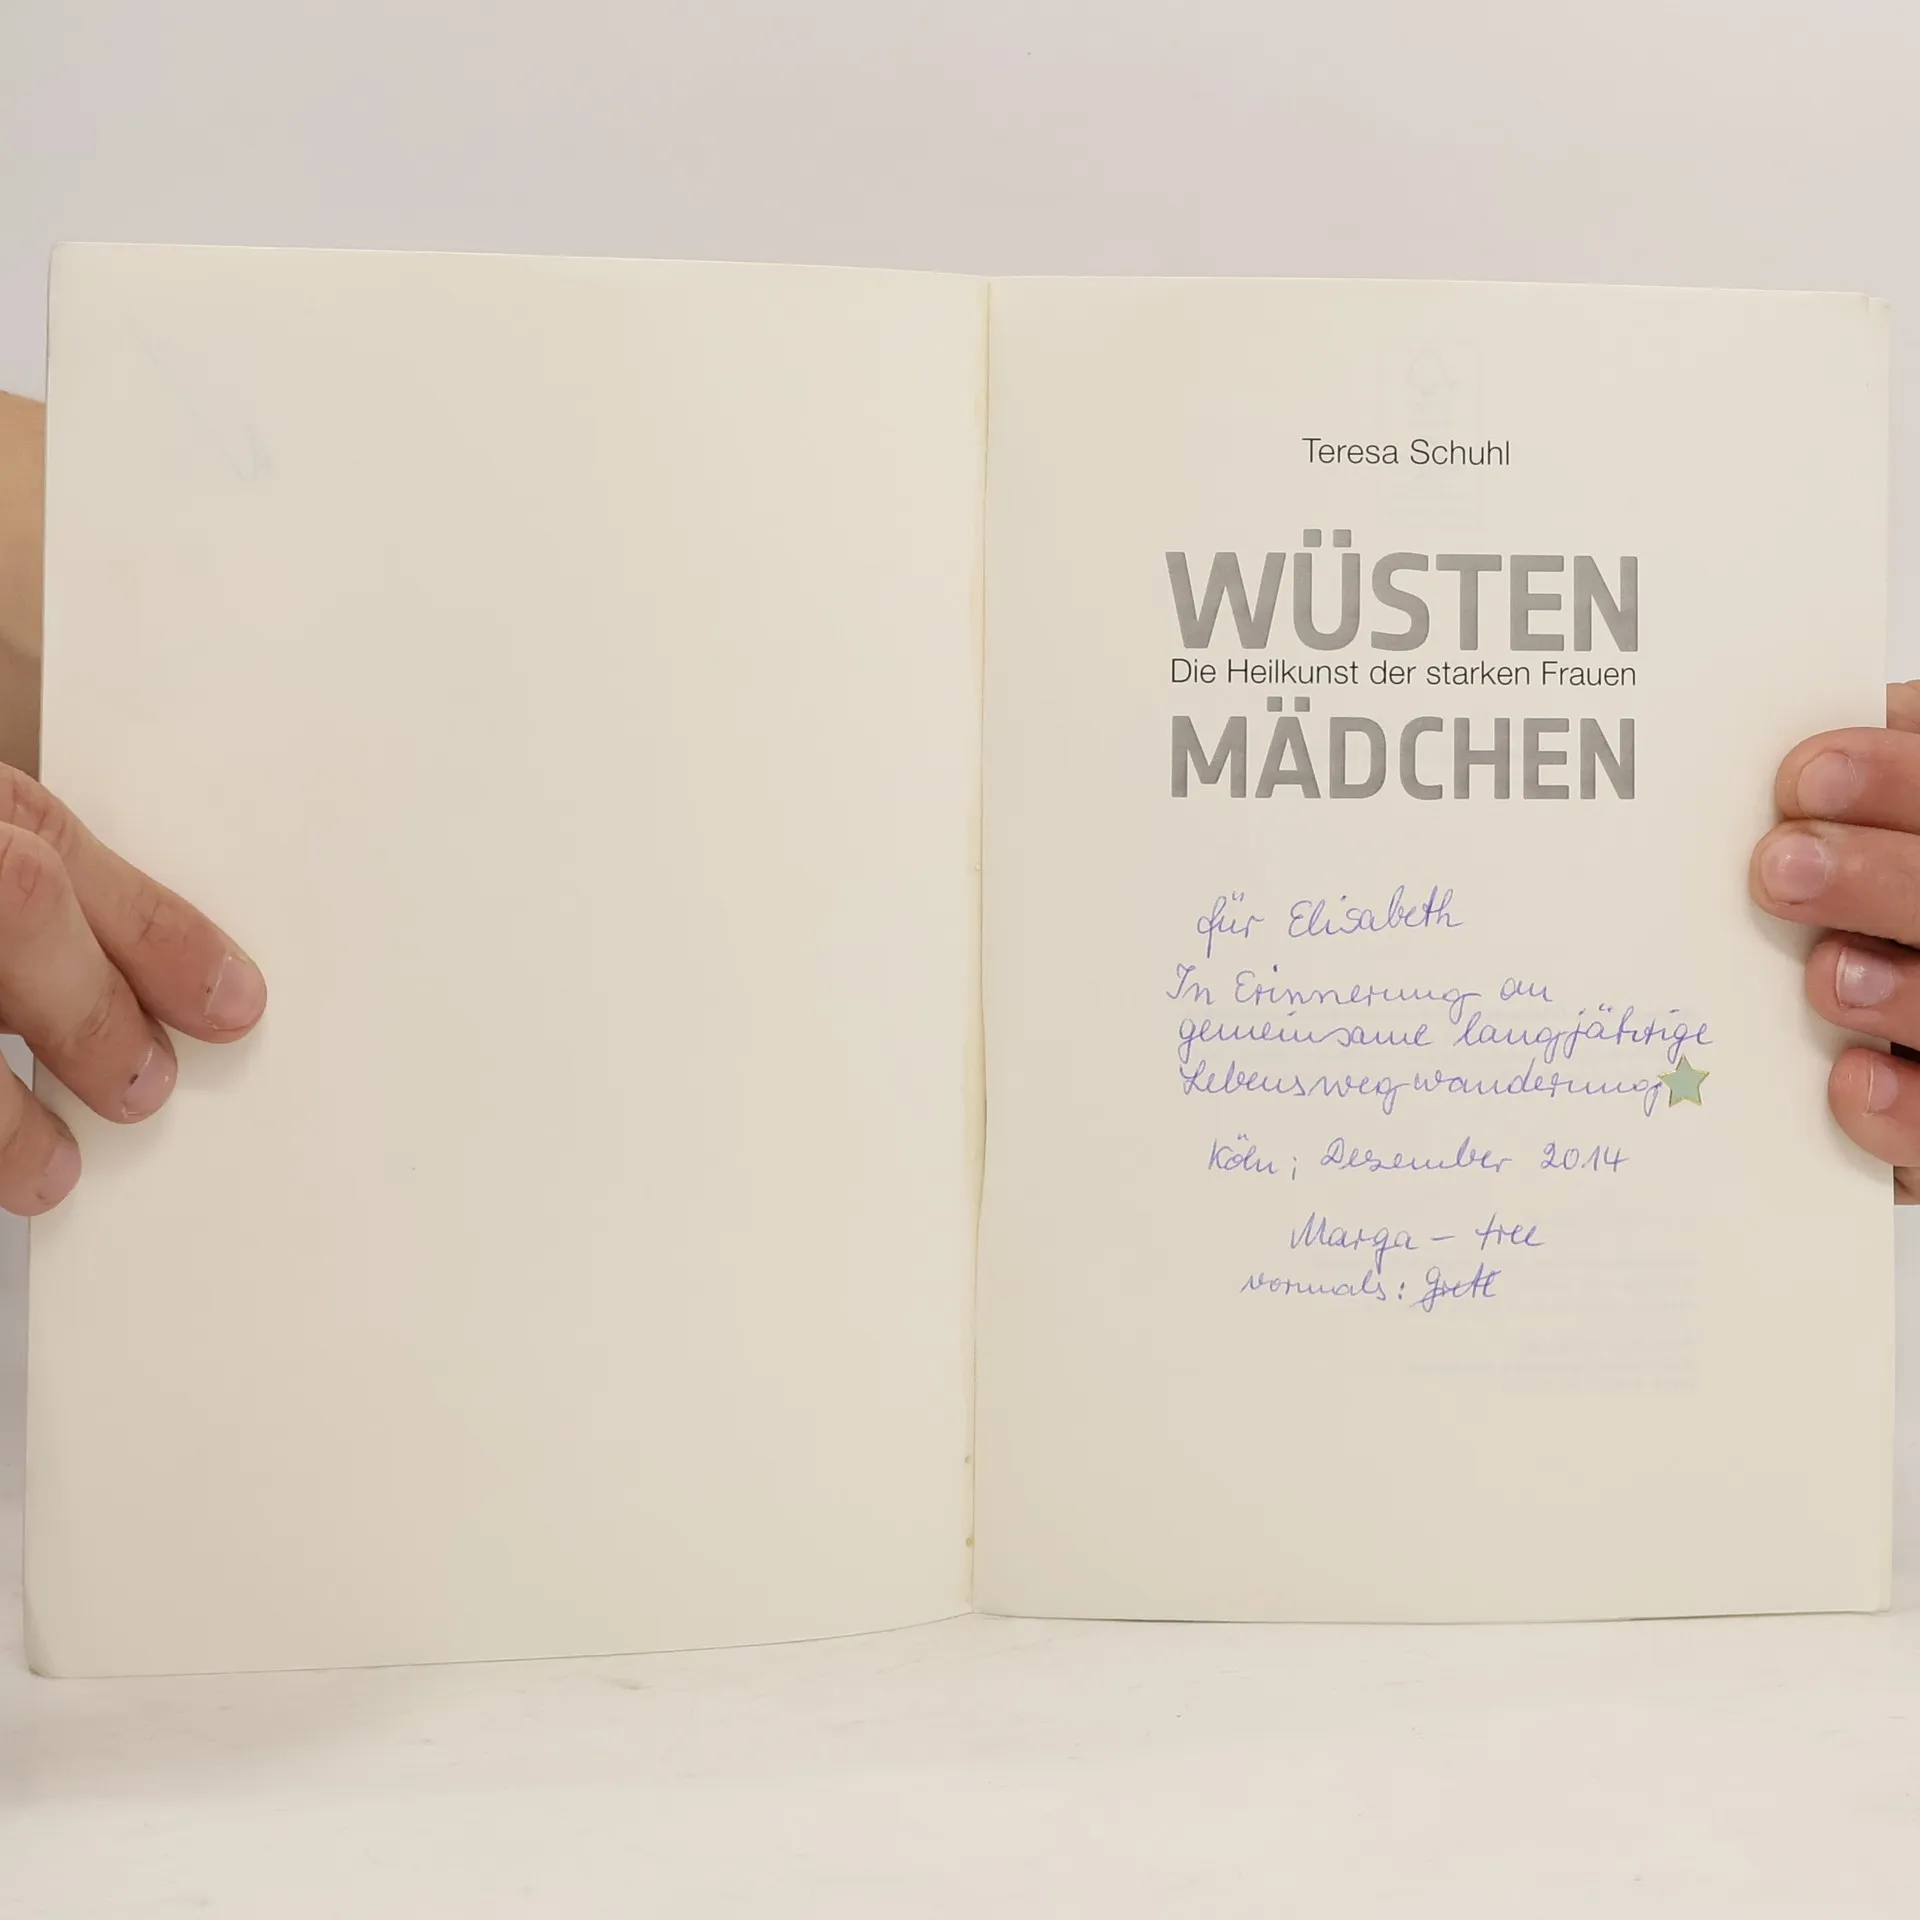 Teresa Schuhl
WÜSTEN
Die Heilkunst der starken Frauen
MÄDCHEN
für Elisabeth
In Erinnerung an
gemeinsame langjährige
Lebenswegwanderung
Köln; Dezember 2014
Marga – tree
vormals: